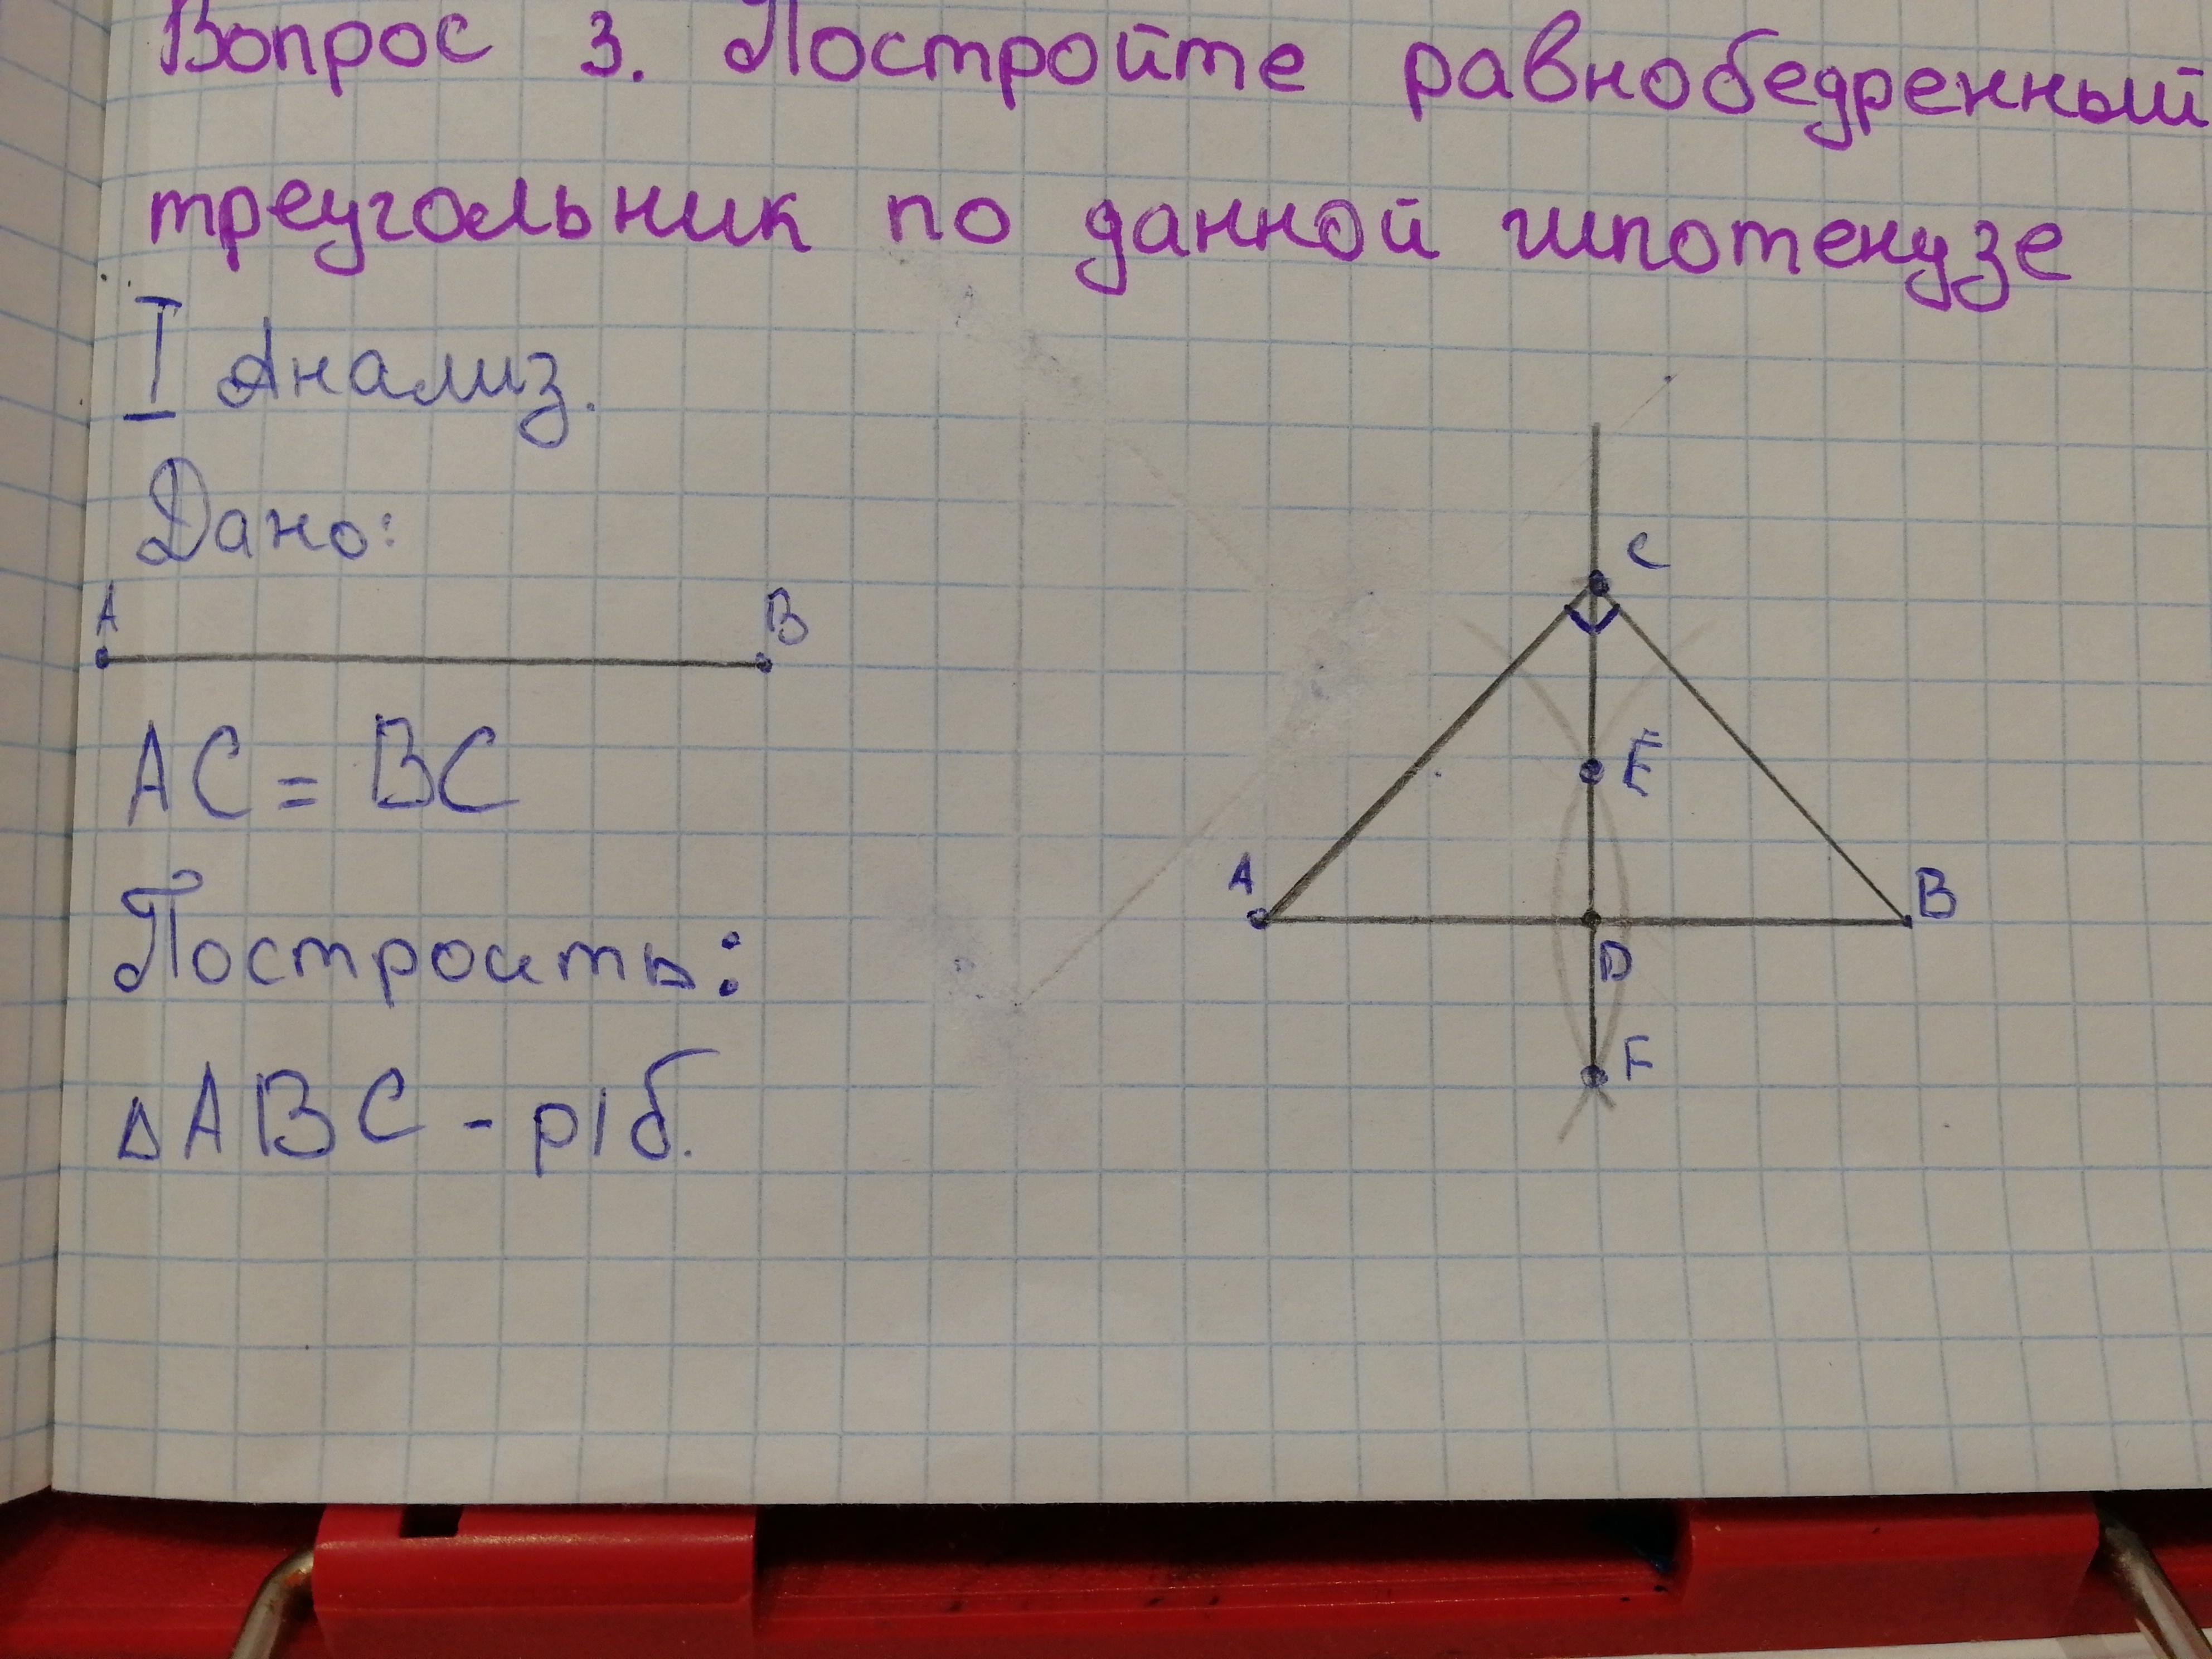 Вопрос 3. Постройте равнобедренный
треугольник по данной гипотенузе
I Анализ.
Дано:
A B
AC = BC
Построить:
ΔABC - р/б.
C
E
A B
D
F